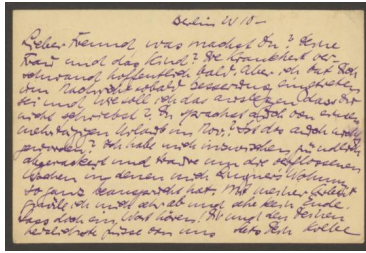 Berlin W 10 –
Lieber Freund was machst Du? deine
Frau und das Kind? Die Krankheit ver-
schwand hoffentlich bald. Aber ich bat Dich
um Nachricht sobald Besserung eingetreten
sei und wie soll ich das auslegen dass Du
nicht schriebst? Du sprachst auch von einem
mehrtägigen Urlaub im Nov.? Ist das auch nichts
geworden? Ich habe mich inzwischen gründlich
abgerackert und traure um die verflossenen
Wochen in denen mich Wohnung
so ganz beansprucht hat. Mit meiner Arbeit
ich mich sehr ab und sehe kein Ende.
Lass doch ein Wort hören! Dir und den Deinen
herzlichste Grüsse von uns stets Dein Kolbe